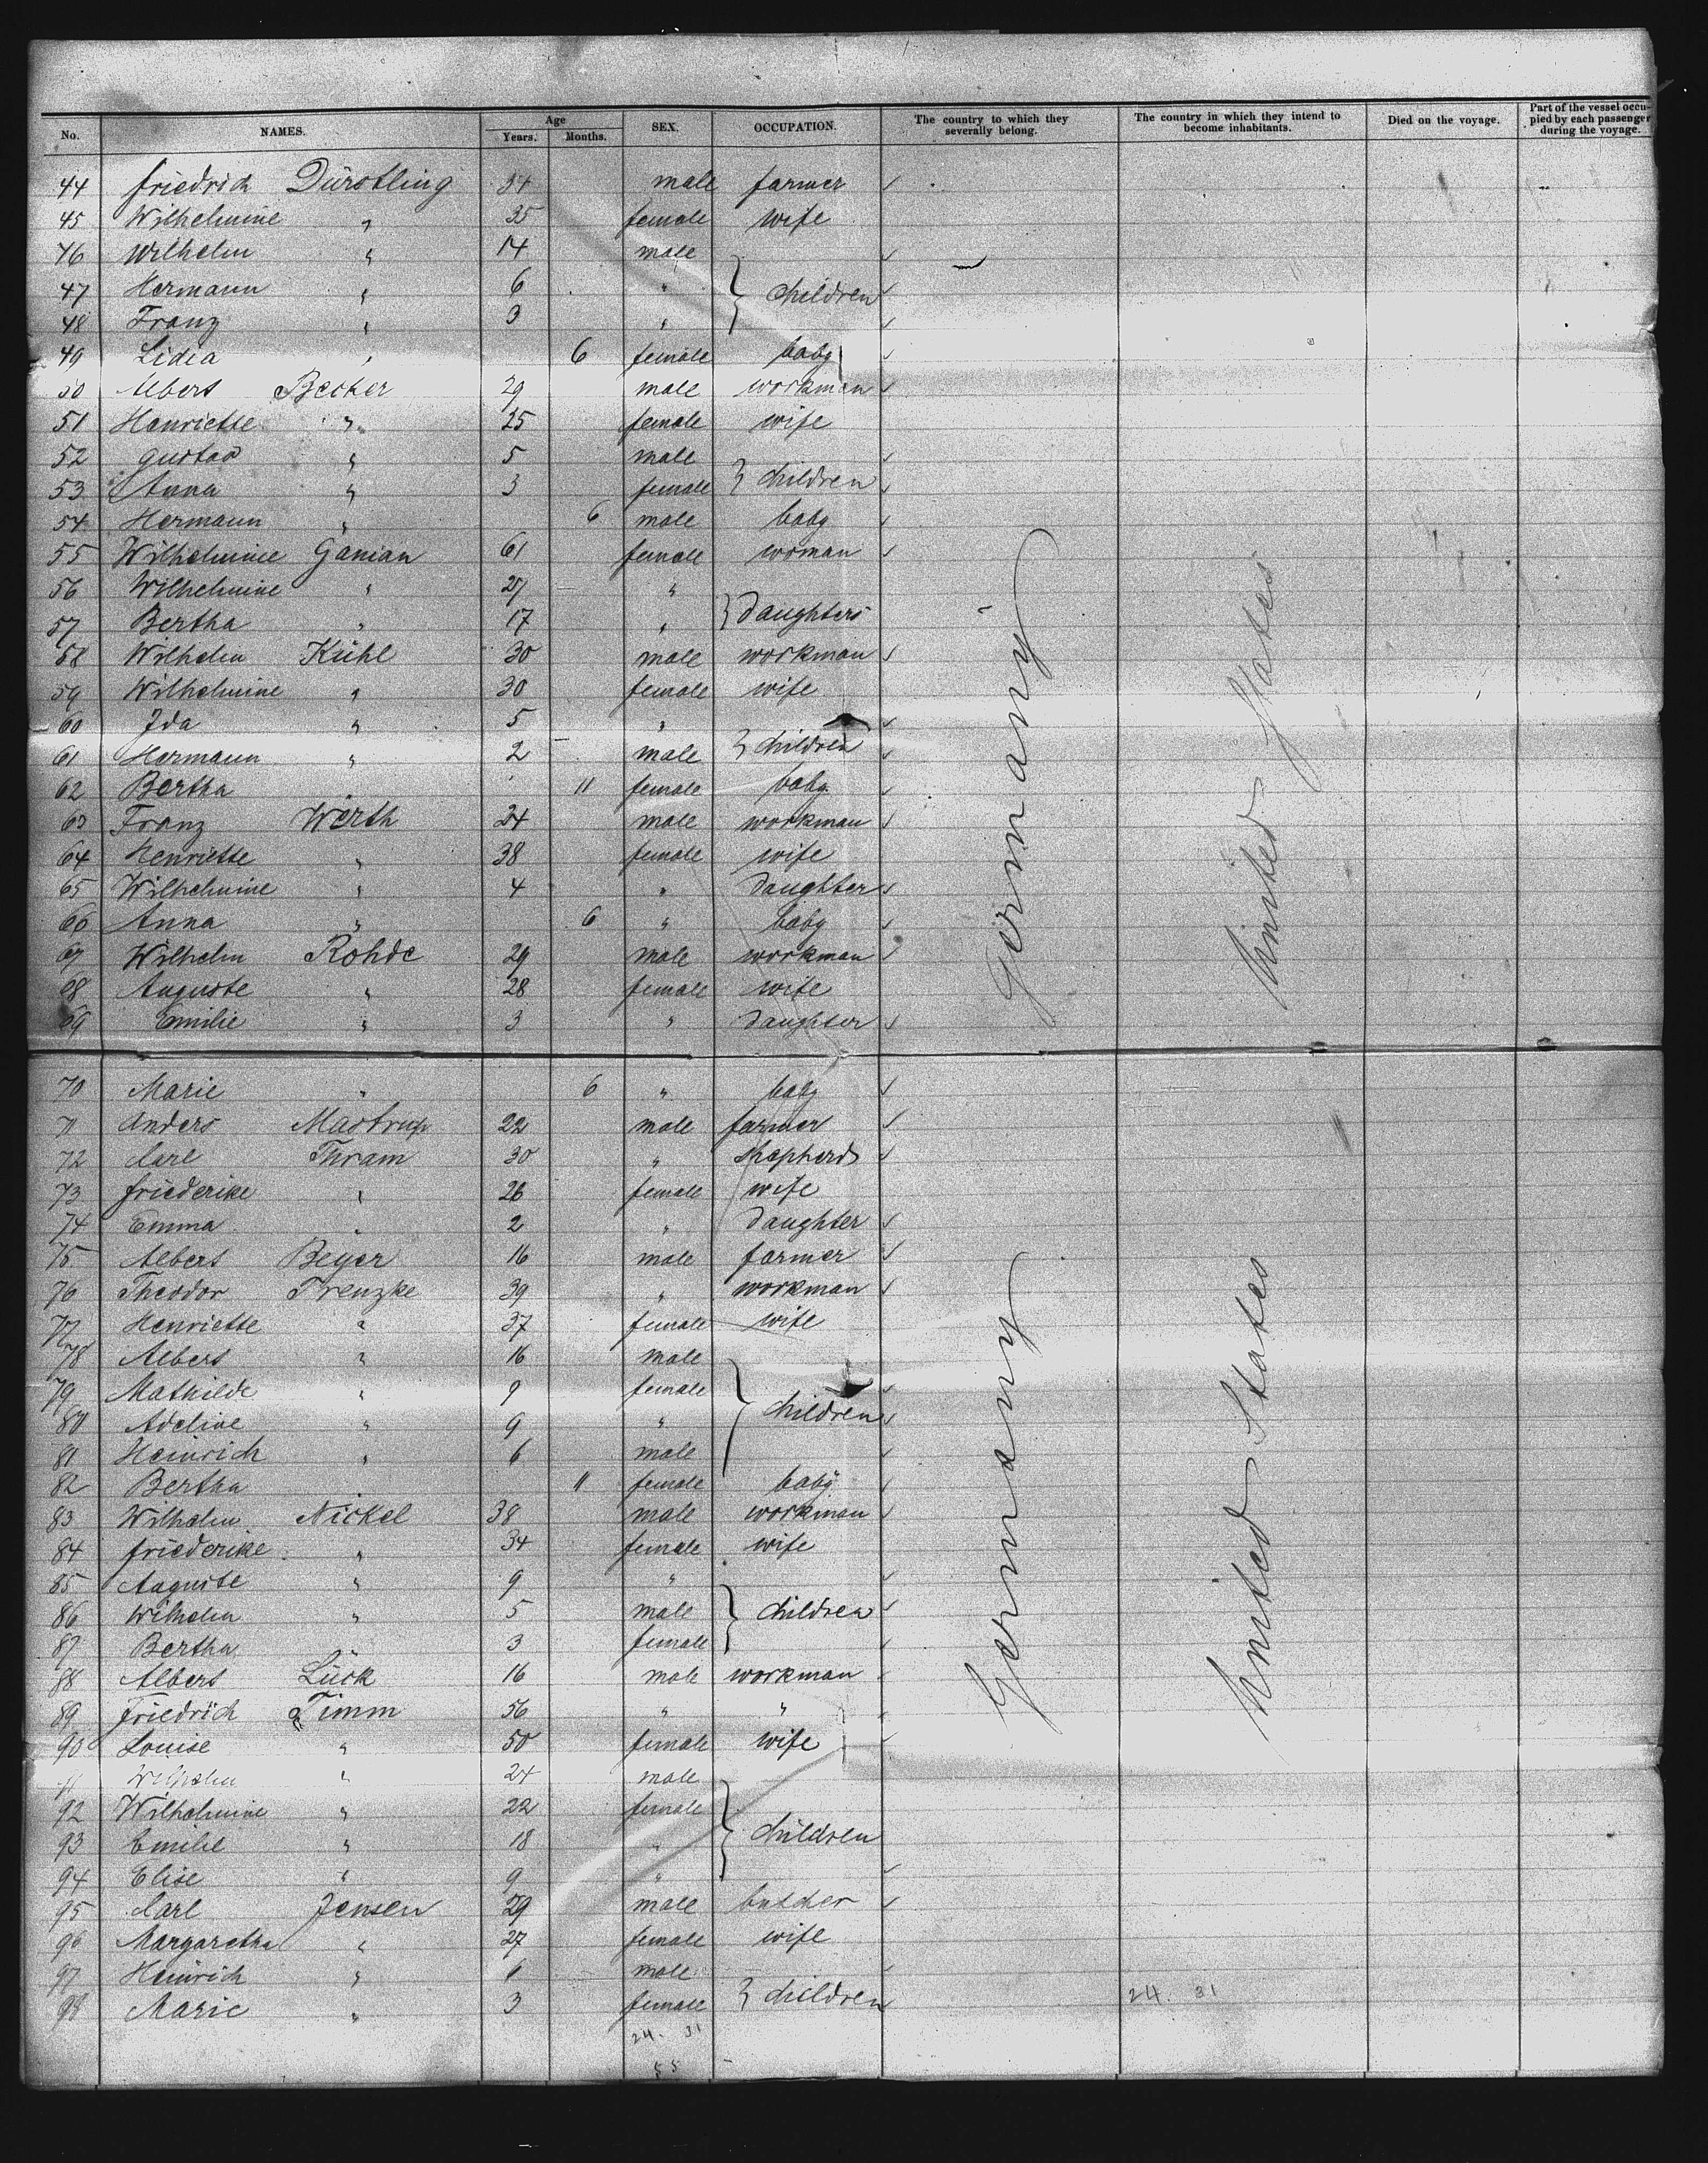 No. NAMES. Age Years. Months. SEX. OCCUPATION. The country to which they severally belong. The country in which they intend to become inhabitants. Died on the voyage. Part of the vessel occupied by each passenger during the voyage.
44 Friedrich Dürstling 34 male farmer
45 Wilhelmine " 35 female wife
46 Wilhelm " 14 male
47 Hermann " 6 " } children
48 Franz " 3 "
49 Lidia " 6 female baby
50 Albert Becker 29 male workman
51 Henriette " 25 female wife
52 Gustav " 5 male
53 Anna " 3 female } children
54 Hermann " 6 male baby
55 Wilhelmine Ganian 61 female woman
56 Wilhelmine " 27 "
57 Bertha " 17 " } daughters
58 Wilhelm Kühl 30 male workman
59 Wilhelmine " 30 female wife
60 Ida " 5 "
61 Hermann " 2 male } children
62 Bertha " 11 female baby
63 Franz Werth 24 male workman
64 Henriette " 38 female wife
65 Wilhelmine " 4 " daughter
66 Anna " 6 " baby
67 Wilhelm Rohde 29 male workman
68 Auguste " 28 female wife
69 Emilie " 3 " daughter
Germany United States
70 Marie " 6 " baby
71 Anders Mastrup 22 male farmer
72 Carl Thram 30 " shepherd
73 Friederike " 26 female wife
74 Emma " 2 " daughter
75 Albert Beyer 16 male farmer
76 Theodor Trenzke 39 " workman
77 Henriette " 37 female wife
78 Albert " 16 male
79 Mathilde " 9 female
80 Adeline " 9 " } children
81 Heinrich " 6 male
82 Bertha " 11 female baby
83 Wilhelm Nickel 38 male workman
84 Friederike " 34 female wife
85 Auguste " 9 "
86 Wilhelm " 5 male } children
87 Bertha " 3 female
88 Albert Lück 16 male workman
89 Friedrich Timm 56 " "
90 Louise " 50 female wife
91 Wilhelm " 24 male
92 Wilhelmine " 22 female
93 Emilie " 18 " } children
94 Elise " 9 "
95 Carl Jensen 29 male butcher
96 Margaretha " 27 female wife
97 Heinrich " 6 male
98 Marie " 3 female } children
Germany United States
24. 31
24. 31
55